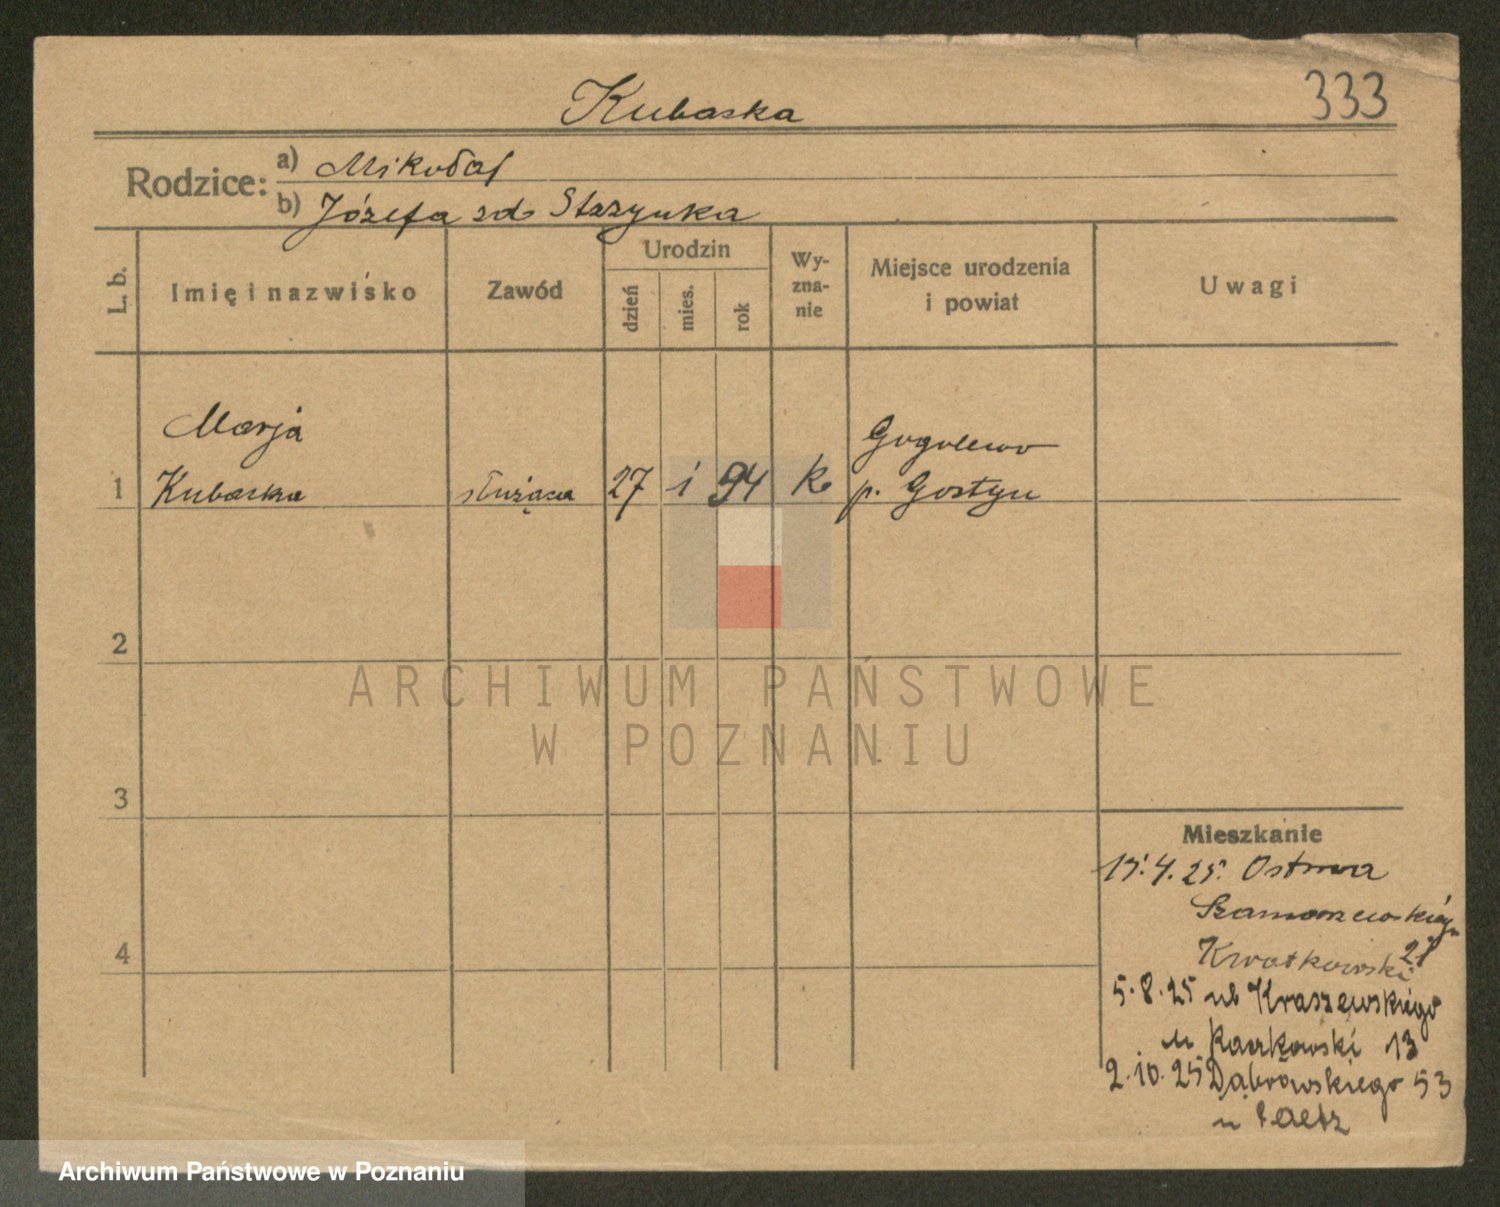 Kubaska
333
Rodzice:
a) Mikołaj
b) Józefa zd. Starzynka
L. b.
Imię i nazwisko
Zawód
Urodzin
dzień
mies.
rok
Wy-
zna-
nie
Miejsce urodzenia
i powiat
Uwagi
Marja
Gogolewo
1 Kubaska służąca 27 i 94 k. p. Gostyn
2
3
4
ARCHIWUM PAŃSTWOWE
W POZNANIU
Mieszkanie
15.4.25. Ostrowa
Szamarzewskiego
27
Kwatkowski
5.8.25 ul Kraszewskiego
u Kaczkowski 13
2.10.25 Dąbrówskiego 53
u
Archiwum Państwowe w Poznaniu